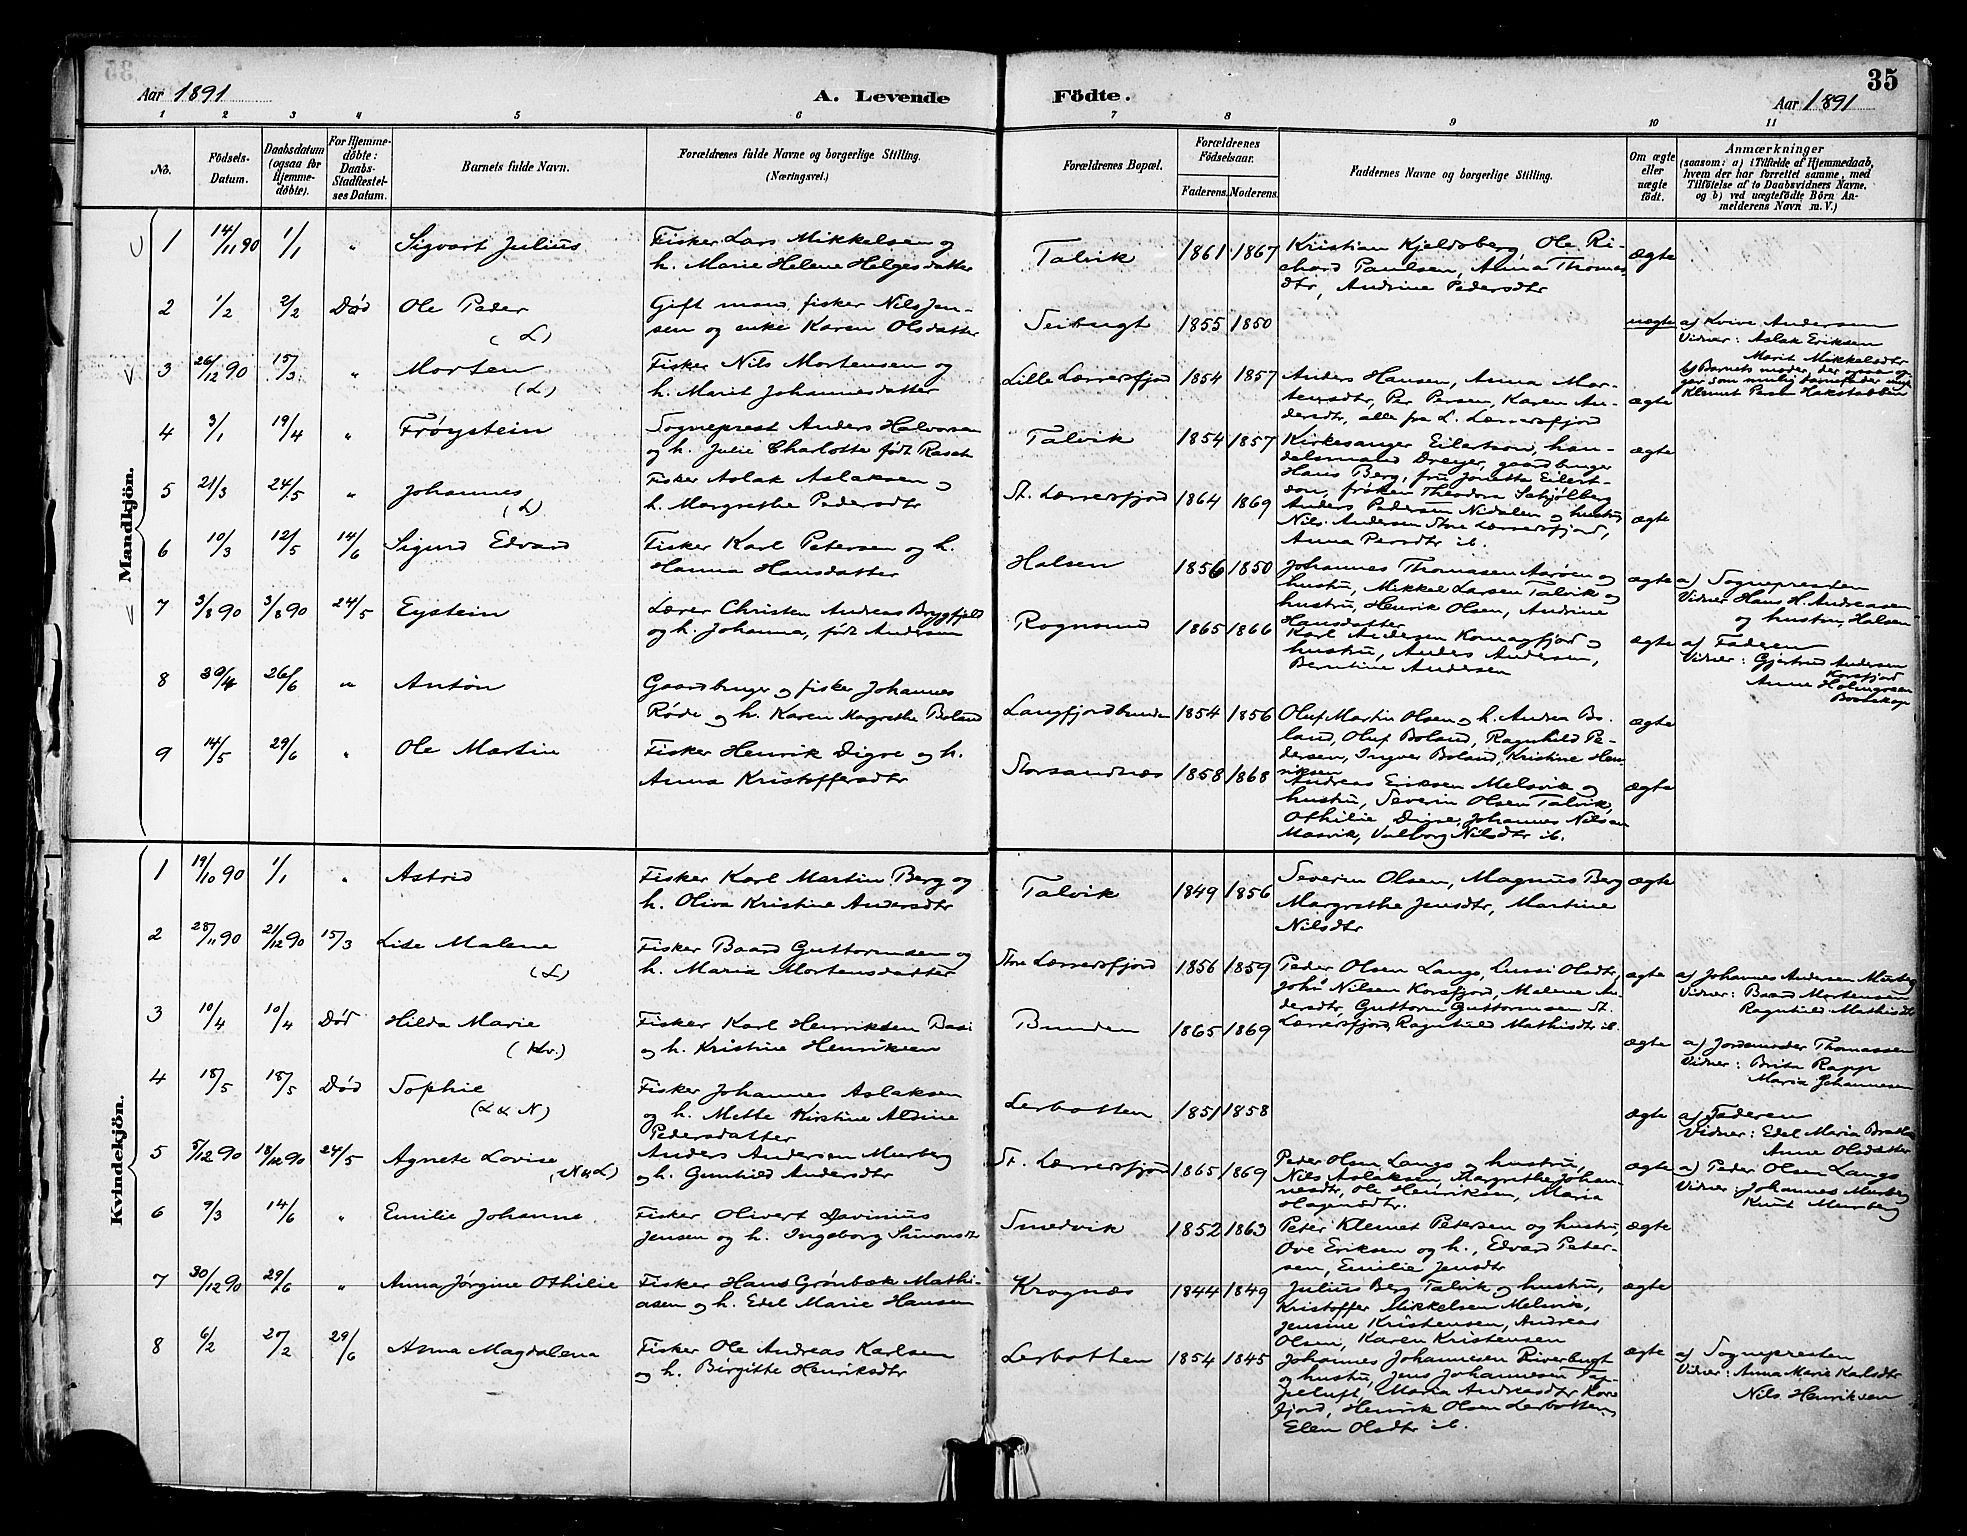 35
Aar 1891
A. Levende Födte.
Aar 1891
1 2 3 4 5 6 7 8 9 10 11
No.
Födsels-
Datum.
Daabsdatum
(ogsaa for
Hjemme-
döbte).
For Hjemme-
döbte:
Daabs-
Stadfæstel-
ses Datum.
Barnets fulde Navn.
Forældrenes fulde Navne og borgerlige Stilling.
(Næringsvei.)
Forældrenes Bopæl.
Forældrenes
Födselsaar.
Faderens. Moderens.
Faddernes Navne og borgerlige Stilling.
Om ægte
eller
uægte
födt.
Anmærkninger
(saasom: a) i Tilfælde af Hjemmedaab,
hvem der har forrettet samme, med
Tilföielse af to Daabsvidners Navne,
og b) ved uægtefödte Börn An-
melderens Navn m. V.)
Mandkjön.
1 14/11 90 1/1 " Sigvart Julius
Fisker Lars Mikkelsen og
h. Marie Helene Helgesdatter
Talvik 1861 1867
Kristian Kjeldsberg, Ole Ri-
chard Paulsen, Anna Thomas
dtr, Andrine Pedersdtr
ægte
2 1/2 2/2 Død Ole Peder
(L)
Gift mand, fisker Nils Jen-
sen og enke Karen Olsdatter
Seibugt 1855 1850
uægte
a) Kvive Andersen
Vidner: Aslak Eriksen
Marit Mikkelsdtr
b) Barnets moder, der opgav
Klemet Persen Hakstabben
3 26/12 90 15/3 " Morten
(L)
Fisker Nils Mortensen og
h. Marit Johannesdatter
Lille Lerresfjord 1854 1857
Anders Hansen, Anna Mor-
tensdtr, Per Persen, Karen An-
dersdtr, alle fra L. Lerresfjord
ægte
4 3/1 19/4 " Frøystein
Sogneprest Anders Halvorsen
og h. Julie Charlotte født Rasch
Talvik 1854 1857
Kirkesanger Eilertsen, han-
delsmand Dreyer, gaardbruger
Hans Berg, fru Jonette Eilert-
sen, frøken Theodora
ægte
5 21/3 24/5 " Johannes
(L)
Fisker Aslak Aslaksen og
h. Margrethe Pedersdtr
St. Lerresfjord 1864 1869
Anders Pedersen Nidalen og hustru
Nils Andersen Store Lerresfjord,
Anna Persdtr ib.
ægte
6 10/3 12/5 14/6 Sigurd Edvard
Fisker Karl Petersen og h.
Hanna Hansdatter
Halsen 1856 1850
Johannes Thomasen Aarøen og
hustru, Mikkel Larsen Talvik og
hustru, Henrik Olsen, Andrine
Hansdatter
ægte
a) Sognepresten
Vidner Hans H. Andreasen
og hustru, Halsen
7 3/8 90 3/8 90 24/5 Eystein
Lærer Christen Andreas Bryggfjeld
og h. Johanna, født Andersen
Rognsund 1865 1866
Karl Andersen Komagfjord og
hustru, Anders Andersen,
Berntine Andersen
ægte
a) Faderen
Vidner: Gjertrud Andersen
Korsfjord
Anne Holmgreen
Bosekop
8 30/4 26/6 " Anton
Gaardbruger og fisker Johannes
Røde og h. Karen Margrethe Boland
Langfjordbunden 1854 1856
Oluf Martin Olsen og h. Andrea Bo-
land, Oluf Boland, Ragnhild Pe-
dersen, Ingver Boland, Kristine Hen-
riksen
ægte
9 14/5 29/6 " Ole Martin
Fisker Henrik Digre og h.
Anna Kristoffersdtr
Storsandnes 1858 1868
Andreas Eriksen Melsvik og
hustru, Severin Olsen Talvik,
Othilie Digre, Johannes Nilsen
Masvik, Valborg Nilsdtr ib.
ægte
Kvindekjön.
1 19/10 90 1/1 " Astrid
Fisker Karl Martin Berg og
h. Oliva Kristine Andersdtr
Talvik 1849 1856
Severin Olsen, Magnus Berg
Margrethe Jensdtr, Martine
Nilsdtr
ægte
2 28/11 90 21/12 90 15/3 Lise Malene
(L)
Fisker Baard Guttormsen og
h. Maria Mortensdatter
Store Lerresfjord 1856 1859
Peder Olsen Langs, Lussi Olsdtr,
John Nilsen Korsfjord, Malene An-
dersdtr, Guttorm Guttormsen St.
Lerresfjord, Ragnhild Mathisdtr ib.
ægte
a) Johannes Andersen Murberg
Vidner: Baard Mortensen
Ragnhild Mathisdtr
3 10/4 10/4 Død Hilda Marie
(Kv.)
Fisker Karl Henriksen Basi
og h. Kristine Henriksen
Bunden 1865 1869
ægte
a) Jordmoder Thomassen
Vidner: Brita Rapp
Maria Johannesen
4 18/5 18/5 Død Sophie
(L & N)
Fisker Johannes Aslaksen
og h. Mette Kirstine Aldine
Pedersdatter
Lerbotten 1851 1858
ægte
a) Faderen
Vidner: Edel Maria
Anne Olsdatter
5 5/12 90 18/12 90 24/5 Agnete Lovise
(N & L)
Anders Andersen Murberg
og h. Gunhild Andersdtr
St. Lerresfjord 1865 1869
Peder Olsen Langs og hustru,
Nils Aslaksen, Margrethe Johan-
nesdtr, Ole Henriksen, Maria
Hagensdtr.
ægte
a) Peder Olsen Langs
Vidner: Johannes Murberg
Knut Murberg
6 9/3 14/6 " Emilie Johanne
Fisker Olivert Davinius
Jensen og h. Ingeborg Simonsdtr
Smedvik 1852 1863
Peter Klemet Petersen og hustru,
Ove Eriksen og h., Edvard Peter-
sen, Emilie Jensdtr
ægte
7 30/12 90 29/6 " Anna Jørgine Othilie
Fisker Hans Grønbæk Mathi-
asen og h. Edel Marie Hansen
Krognæs 1844 1849
Julius Berg Talvik og hustru,
Kristoffer Mikkelsen Melsvik,
Jensine Kristensen, Andreas
Olsen, Karen Kristensen
ægte
8 6/2 27/2 29/6 Anna Magdalena
Fisker Ole Andreas Karlsen
og h. Birgitte Henriksdtr
Lerbotten 1854 1845
Johannes Johannesen Riverbugt
og hustru, Jens Johannesen Tap-
peluft, Maria Andreasdtr Kors
fjord, Henrik Olsen Lerbotten,
Elen Olsdtr ib.
ægte
a) Sognepresten
Vidner: Anna Marie Karlsdtr
Nils Henriksen